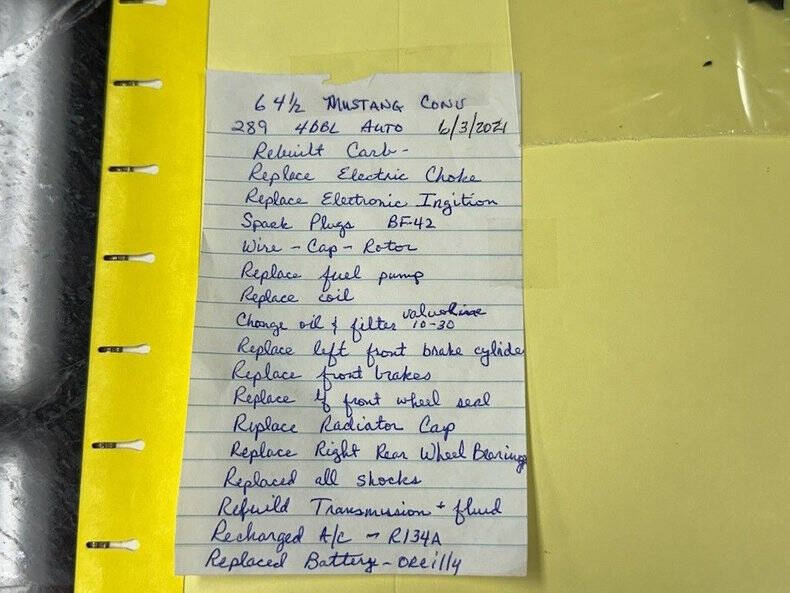 64½ MUSTANG CONV
289 4BBL AUTO 6/3/2021
Rebuilt Carb-
Replace Electric Choke
Replace Electronic Ingition
Spark Plugs BF-42
Wire - Cap - Rotor
Replace fuel pump
Replace coil
Change oil & filter valvoline 10-30
Replace left front brake cylinde
Replace front brakes
Replace lf front wheel seal
Replace Radiator Cap
Replace Right Rear Wheel Bearings
Replaced all shocks
Rebuild Transmission + fluid
Recharged A/C - R134A
Replaced Battery - OREilly